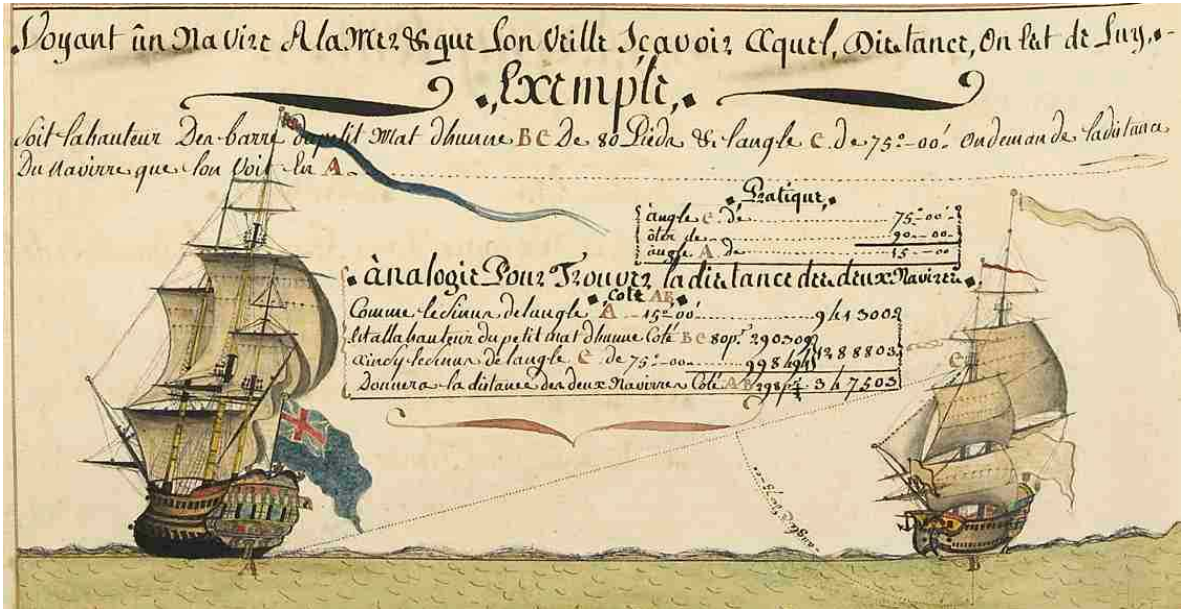 Voyant un Navire A la Mer & que Lon Veille Sçavoir Aquel, Distance, On Est de Luy,
Exemple,
Soit la hauteur Des barre du petit Mat dhunne B C De 80 Pieds & langle C de 75°-00' On demande la distance
Du Navirre que lon Voit En A
Pratique,
angle C de 75°-00'
ôter de 90-00
angle A de 15-00
ànalogie Pour Trouver la distance des deux Navires
Coté AB
Comme le Sinus de langle A 15°-00' 941300
Est a la hauteur du petit mat dhunne Coté B C 80 pd 190309
ainsy le sinus de langle C de 75°-00 998494 1188803
Donnera la distance des deux Navirres Coté A B 298 pd 247503
C
angle A de 15°-00'
A
B